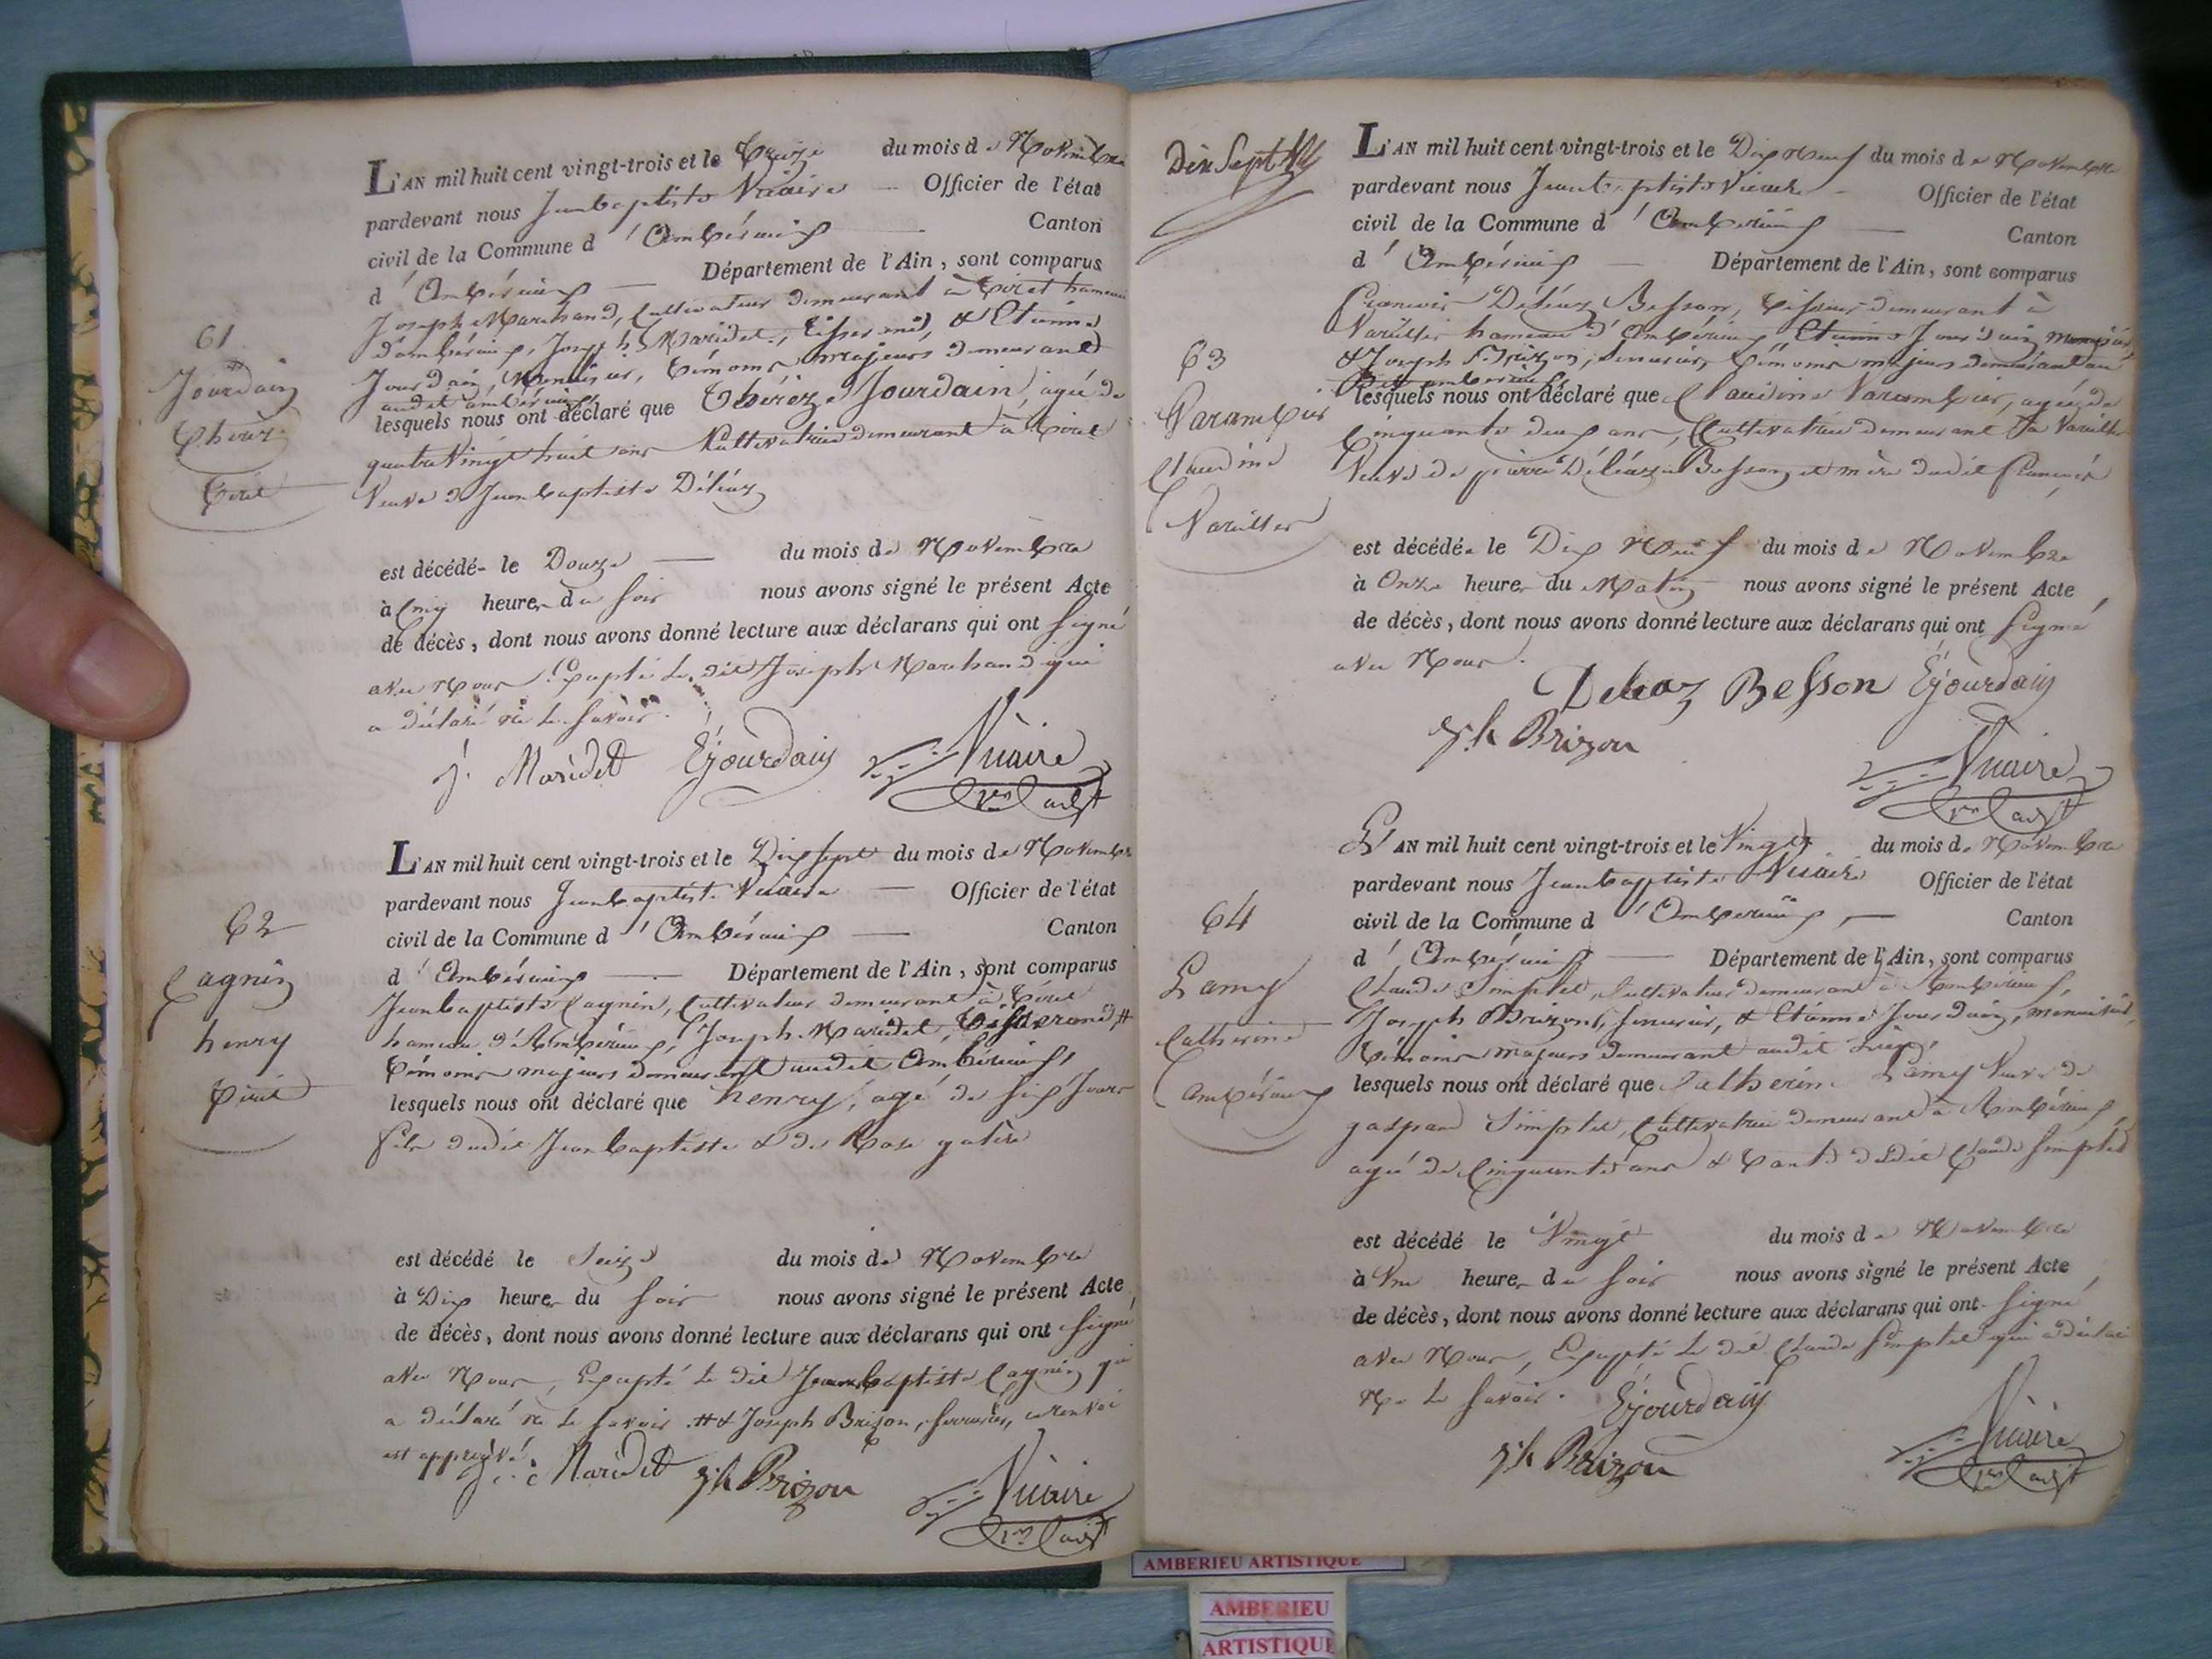 61
Jourdain
Thérèze
Tiret
L'AN mil huit cent vingt-trois et le Treize du mois de Novembre
pardevant nous Jeanbaptiste Vicaire Officier de l'état
civil de la Commune d'Ambérieux Canton
d'Ambérieux Département de l'Ain, sont comparus
Joseph Marchand, Cultivateur demeurant à Tiret hameau
d'ambérieux, Joseph Maridet, Tisserand, & Etienne
Jourdain, Menuisier, témoins majeurs demeurant
audit ambérieux,
lesquels nous ont déclaré que Thérèze Jourdain, agée de
quatre Vingt huit ans Cultivatrice demeurant à Tiret
Veuve de Jeanbaptiste Déléaz
est décédé- le Douze du mois de Novembre
à Cinq heures du soir nous avons signé le présent Acte
de décès, dont nous avons donné lecture aux déclarans qui ont signé
avec Nous Excepté le dit Joseph Marchand qui
a déclaré ne le savoir.
J. Maridet Ejourdain Vicaire
62
Cagnin
henry
Tiret
L'AN mil huit cent vingt-trois et le Dix sept du mois de Novembre
pardevant nous Jeanbaptiste Vicaire Officier de l'état
civil de la Commune d'Ambérieux Canton
d'Ambérieux Département de l'Ain, sont comparus
Jeanbaptiste Cagnin, Cultivateur demeurant à Tiret
hameau d'Ambérieux, Joseph Maridet, Tisserand, #
témoins majeurs demeurant audit Ambérieux,
lesquels nous ont déclaré que henry, agé de six jours
fils dudit Jeanbaptiste & de Rose
est décédé le Seize du mois de Novembre
à Dix heures du soir nous avons signé le présent Acte
de décès, dont nous avons donné lecture aux déclarans qui ont signé
avec Nous, Excepté le dit Jeanbaptiste Cagnin qui
a déclaré ne le savoir. # & Joseph Brizon, serrurier, ce renvoi
est approuvé.
Maridet Jh Brizon Vicaire
Dix Sept
63
Varambier
Claudine
Vareilles
L'AN mil huit cent vingt-trois et le Dix Neuf du mois de Novembre
pardevant nous Jeanbaptiste Vicaire Officier de l'état
civil de la Commune d'Ambérieux Canton
d'Ambérieux Département de l'Ain, sont comparus
françois Déléaz Besson, Tisseur demeurant à
Vareilles hameau d'Ambérieux, Etienne Jourdain menuisier
& Joseph Brizon, serrurier, témoins majeurs demeurant au
Dit ambérieux
lesquels nous ont déclaré que Claudine Varambier, agée de
Cinquante deux ans, Cultivatrice demeurant à Vareilles
Veuve de pierre Déléaz Besson et mère dudit françois
est décédée le Dix Neuf du mois de Novembre
à Onze heures du Matin nous avons signé le présent Acte
de décès, dont nous avons donné lecture aux déclarans qui ont signé
avec Nous.
Deleaz Besson Ejourdain
Jh Brizon
Vicaire
64
Lamy
Catherine
Ambérieux
L'AN mil huit cent vingt-trois et le Vingt du mois de Novembre
pardevant nous Jeanbaptiste Vicaire Officier de l'état
civil de la Commune d'Ambérieux Canton
d'Ambérieux Département de l'Ain, sont comparus
Claude Simplet, Cultivateur demeurant à Ambérieux,
Joseph Brizon, serrurier, & Etienne Jourdain, menuisier,
témoins majeurs demeurant audit lieu,
lesquels nous ont déclaré que Catherine Lamy Veuve de
gaspard Simplet, Cultivatrice demeurant à Ambérieux,
agée de Cinquante ans & tante dudit Claude Simplet
est décédé le Vingt du mois de Novembre
à Une heure du soir nous avons signé le présent Acte
de décès, dont nous avons donné lecture aux déclarans qui ont signé
avec Nous, Excepté le dit Claude Simplet qui a déclaré
Ne le savoir. Ejourdain
Jh Brizon Vicaire
AMBERIEU ARTISTIQUE
AMBERIEU
ARTISTIQUE